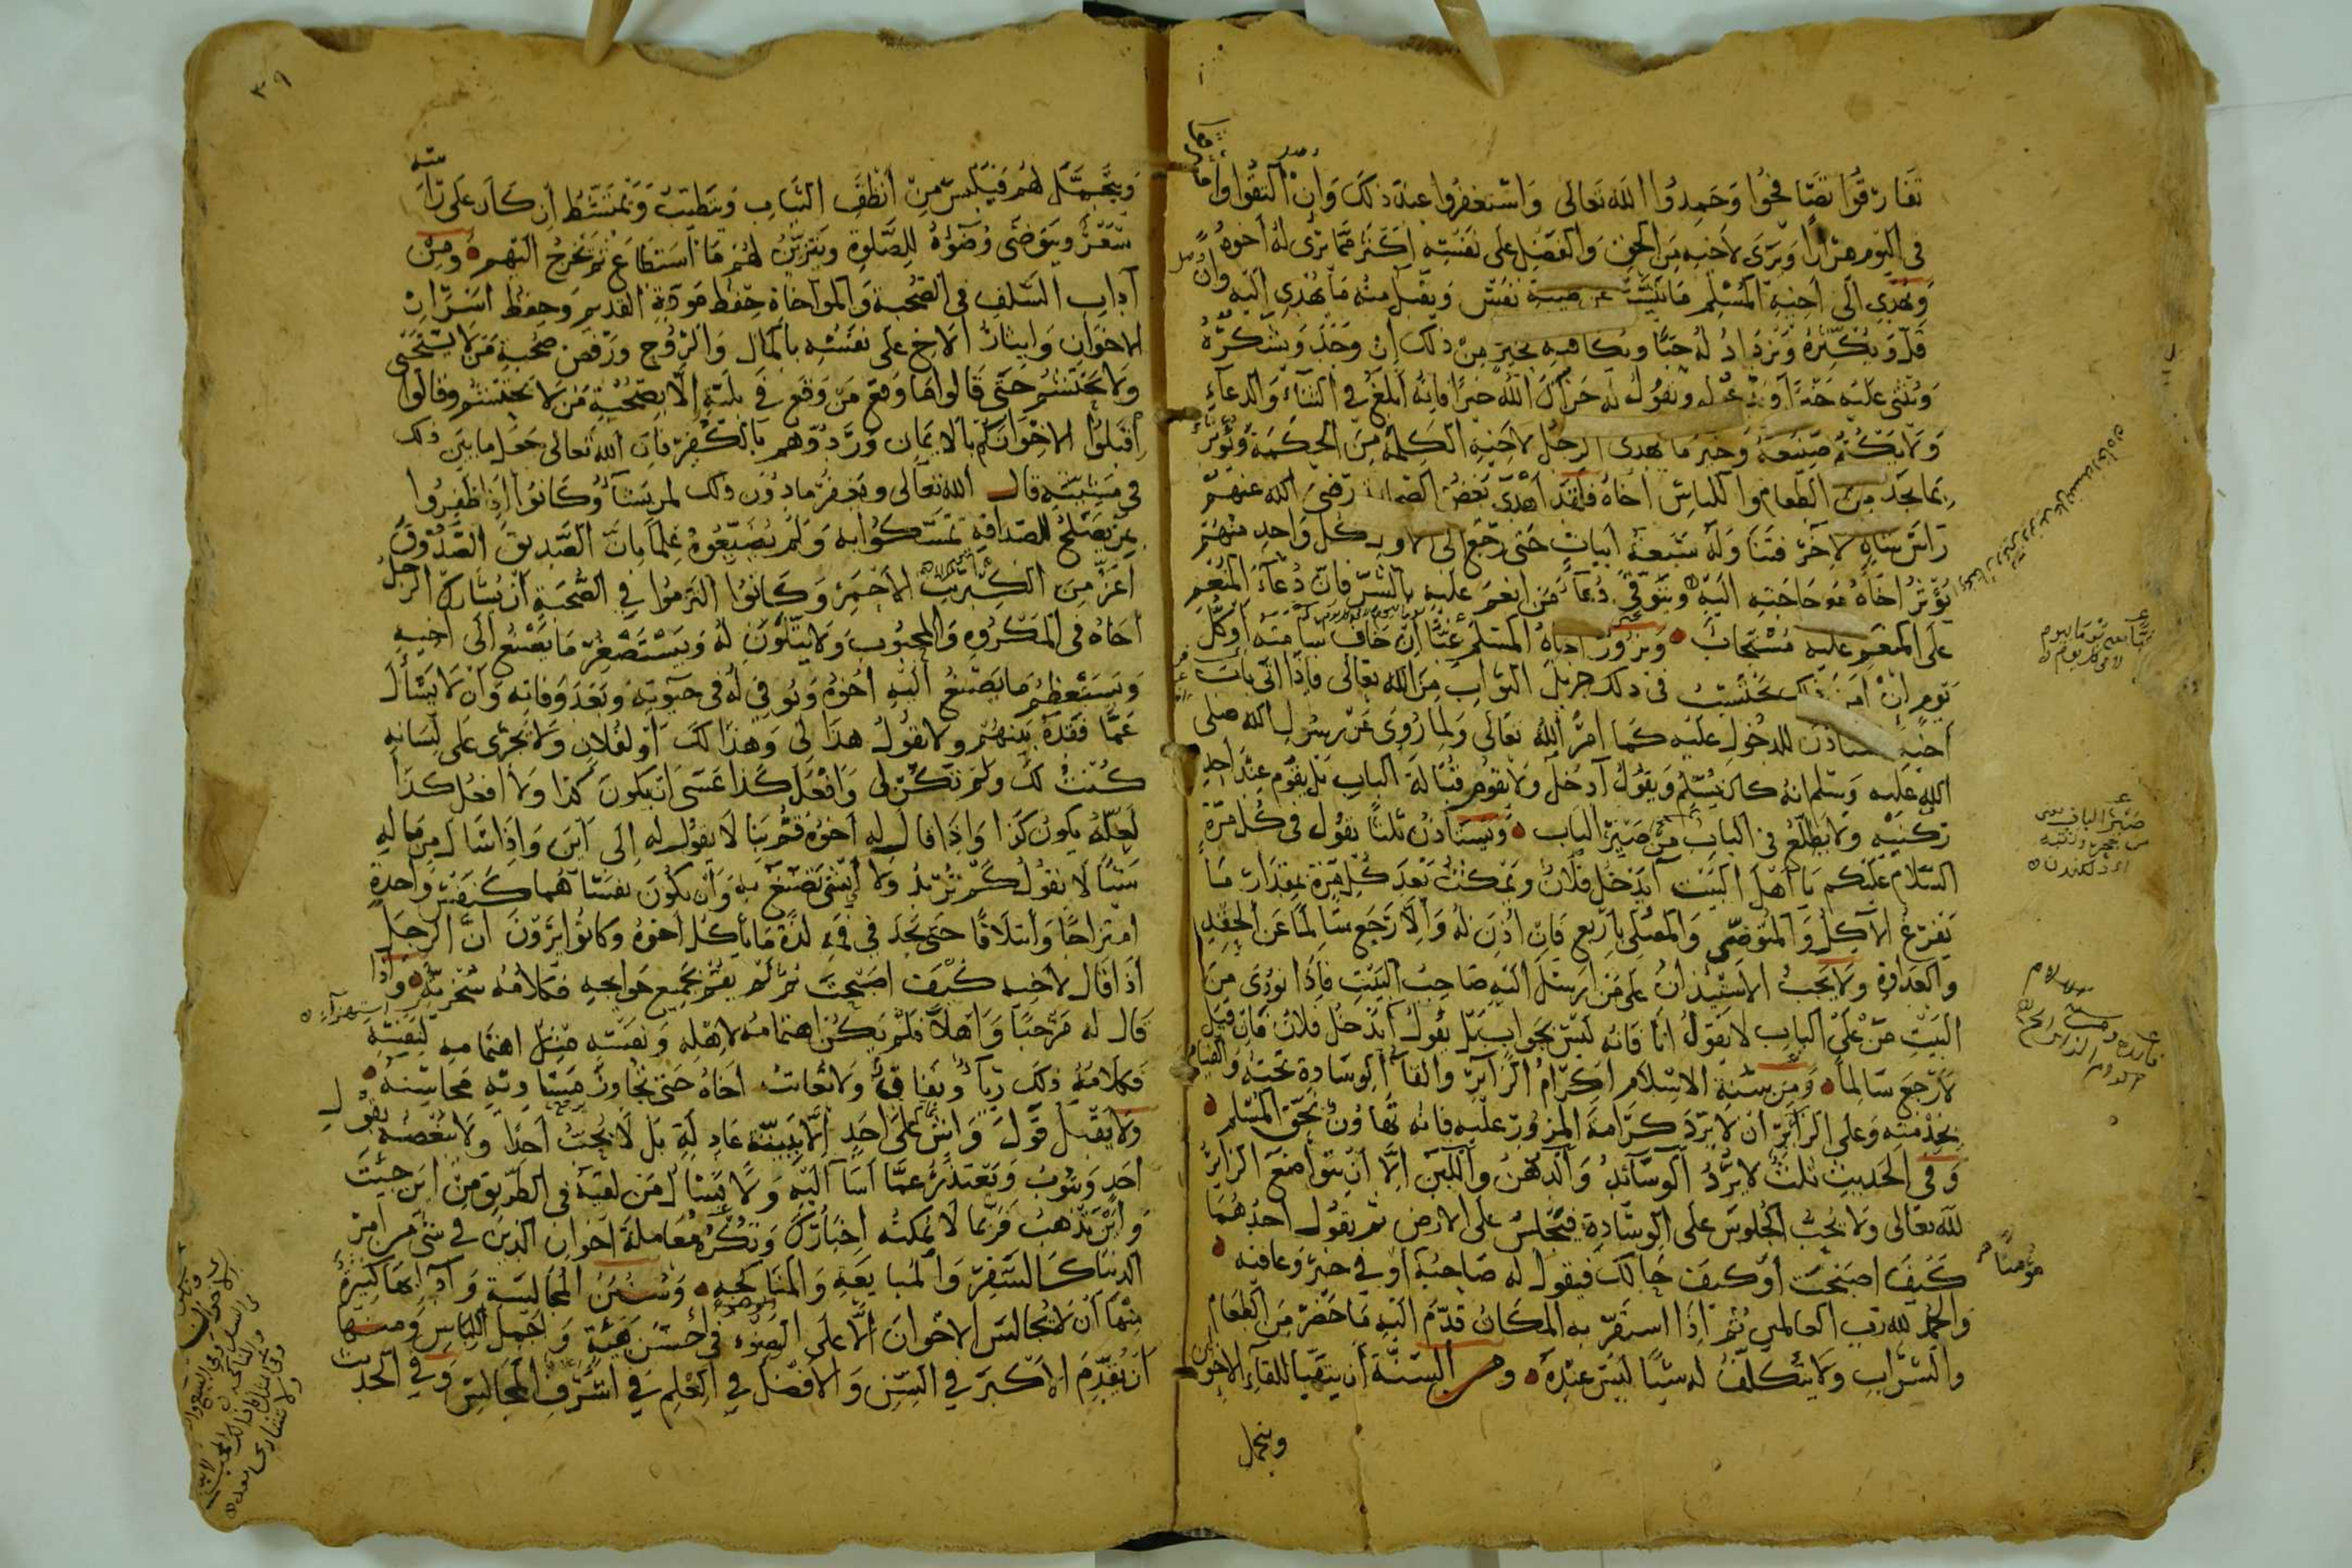 تفارقوا تصافحوا وحمدوا الله تعالى واستغفروا عند ذلك وان التقوا
في اليوم مرارا ويرى لاخيه من الحق والفضل على نفسه اكثر مما يرى له اخوه
ويهدي الى اخيه المسلم ما تيسر عن طيبة نفس ويقبل منه ما يهدي اليه وان
قل ويكثره ويزداد له حبا ويكافيه بخير من ذلك ان وجد ويشكره
ويثني عليه ويقول له جزاك الله خيرا فانه ابلغ في الثناء والدعاء
ولا يكتم صنيعه وخير ما يهدى الرجل لاخيه الكلمة من الحكمة ويؤثر
بما يجد من الطعام واللباس اخاه فلقد اهدى بعض الصحابة رضي الله عنهم
راس شاة لاخر فتنا وله سبعة ابيات حتى رجع الى الاول كل واحد منهم
يؤثر اخاه مع حاجته اليه ويتوقى دعاء من انعم عليه بالشر فان دعاء المنعم
على المنعم عليه مستجاب ويزور اخاه المسلم غبا ان خاف سامته او كل
يوم ان امن ذلك يحتسب في ذلك جزيل الثواب من الله تعالى فاذا اتى باب
اخيه للدخول عليه كما امر الله تعالى ولما روي عن رسول الله صلى
الله عليه وسلم انه كان يسلم ويقول آدخل ولا يقوم قبالة الباب بل يقوم عند احد
ركنيه ولا يطلع في الباب من صير الباب ويستاذن ثلثا يقول في كل مرة
السلام عليكم يا اهل البيت ايدخل فلان ويمكث بعد كل مرة بمقدار ما
يفرغ الاكل والمتوضي والمصلي باربع فان اذن له والا رجع سالما عن الحقد
والعداوة ولا يجب الاستيذان على من ارسل اليه صاحب البيت فاذا نودي من
البيت من على الباب لا يقول انا فانه ليس بجواب بل يقول ايدخل فلان فان قيل
لا رجع سالما ومن سنة الاسلام اكرام الزائر والقاء الوسادة تحته والقيام
بخدمته وعلى الزائر ان لا يرد كرامة المزور عليه فانه تهاون بحق المسلم
وفي الحديث ثلث لا يرد الوسائد والدهن واللبن الا ان يتواضع الزائر
لله تعالى ولا يحب الجلوس على الوسادة فيجلس على الارض ثم يقول احدهما
كيف اصبحت او كيف حالك فيقول له صاحبه او في خير وعافية
والحمد لله رب العالمين ثم اذا استقر به المكان قدم اليه ما حضر من الطعام
والشراب ولا يتكلف له شيا ليس عنده ومن السنة ان يتهيا للقاء الاخوان
ويتجمل
مؤمنا
ويتجمل لهم فيلبس من انظف الثياب ويتطيب ويمتشط ان كان على راسه
شعر ويتوضى وضوءه للصلوة ويتزين لهم ما استطاع ثم يخرج اليهم ومن
آداب السلف في الصحبة والمواخاة حفظ مودة القديم وحفظ اسرار
الاخوان وايثار الاخ على نفسه بالمال والروح ورفض صحبة من لا يستحيى
ولا يحتشم حتى قالوا ما وقع من وقع في بلية الا بصحبة من لا يحتشم وقالوا
اقبلوا الاخوانكم بالايمان وردوهم بالكفر فان الله تعالى جعل ما بين ذلك
في مشيته قال الله تعالى ويغفر ما دون ذلك لمن يشاء وكانوا اذا ظفروا
بمن يصلح للصداقة تمسكوا به ولم يضيعوه علما بان الصديق الصدوق
اعز من الكبريت الاحمر وكانوا التزموا في الصحبة ان يشارك الرجل
اخاه في المكروه والمحبوب ولا يتلون له ويستصغر ما يصنع الى اخيه
ويستعظم ما يصنع اليه اخوه ويوفي له في حيوته وبعد وفاته وان لا يسأل
عما فقده بينهم ولا يقول هذا لي وهذا لك او لفلان ولا يجري على لسانه
كنت لك ولم تكن لي وافعل كذا عسى ان يكون كذا ولا افعل كذا
لعله يكون كذا واذا قال له اخوه قم بنا لا يقول له الى اين واذا سال من ماله
شيا لا يقول كم تريد ولا ايش تصنع به وان يكون نفسا هما كنفس واحدة
امتزاجا وائتلافا حتى يجد في فمه لذة ما ياكل اخوه وكانوا يرون ان الرجل
اذا قال لاخيه كيف اصبحت ثم لم يقم بجميع حوايجه فكلامه سخرية واذا
قال له مرحبا واهلا فلم يكن اهتمامه لاهله ونفسه مثل اهتمامه لنفسه
فكلامه ذلك رياء ونفاق ولا يعاتب اخاه حتى تجاوز مساويه محاسنه
ولا يقبل قول واش على احد الا ببينة عادلة بل لا يحب احدا ولا يبغضه بقول
احد ويتوب ويعتذر عما اسا اليه ولا يسال من لقيه في الطريق من اين جئت
واين تذهب فربما لا يمكنه اخبارك ويكره معاملة اخوان الدين في شي من امر
الدنيا كالسفر والمبايعة والمناكحة وسنن المجالسة وآدابها كثيرة
منها ان لا يجالس الاخوان الا على الوضوء في احسن هيئة واجمل اللباس ومنها
ان يقدم الاكبر في السن والافضل في العلم في اشرف المجالس وفي الحديث